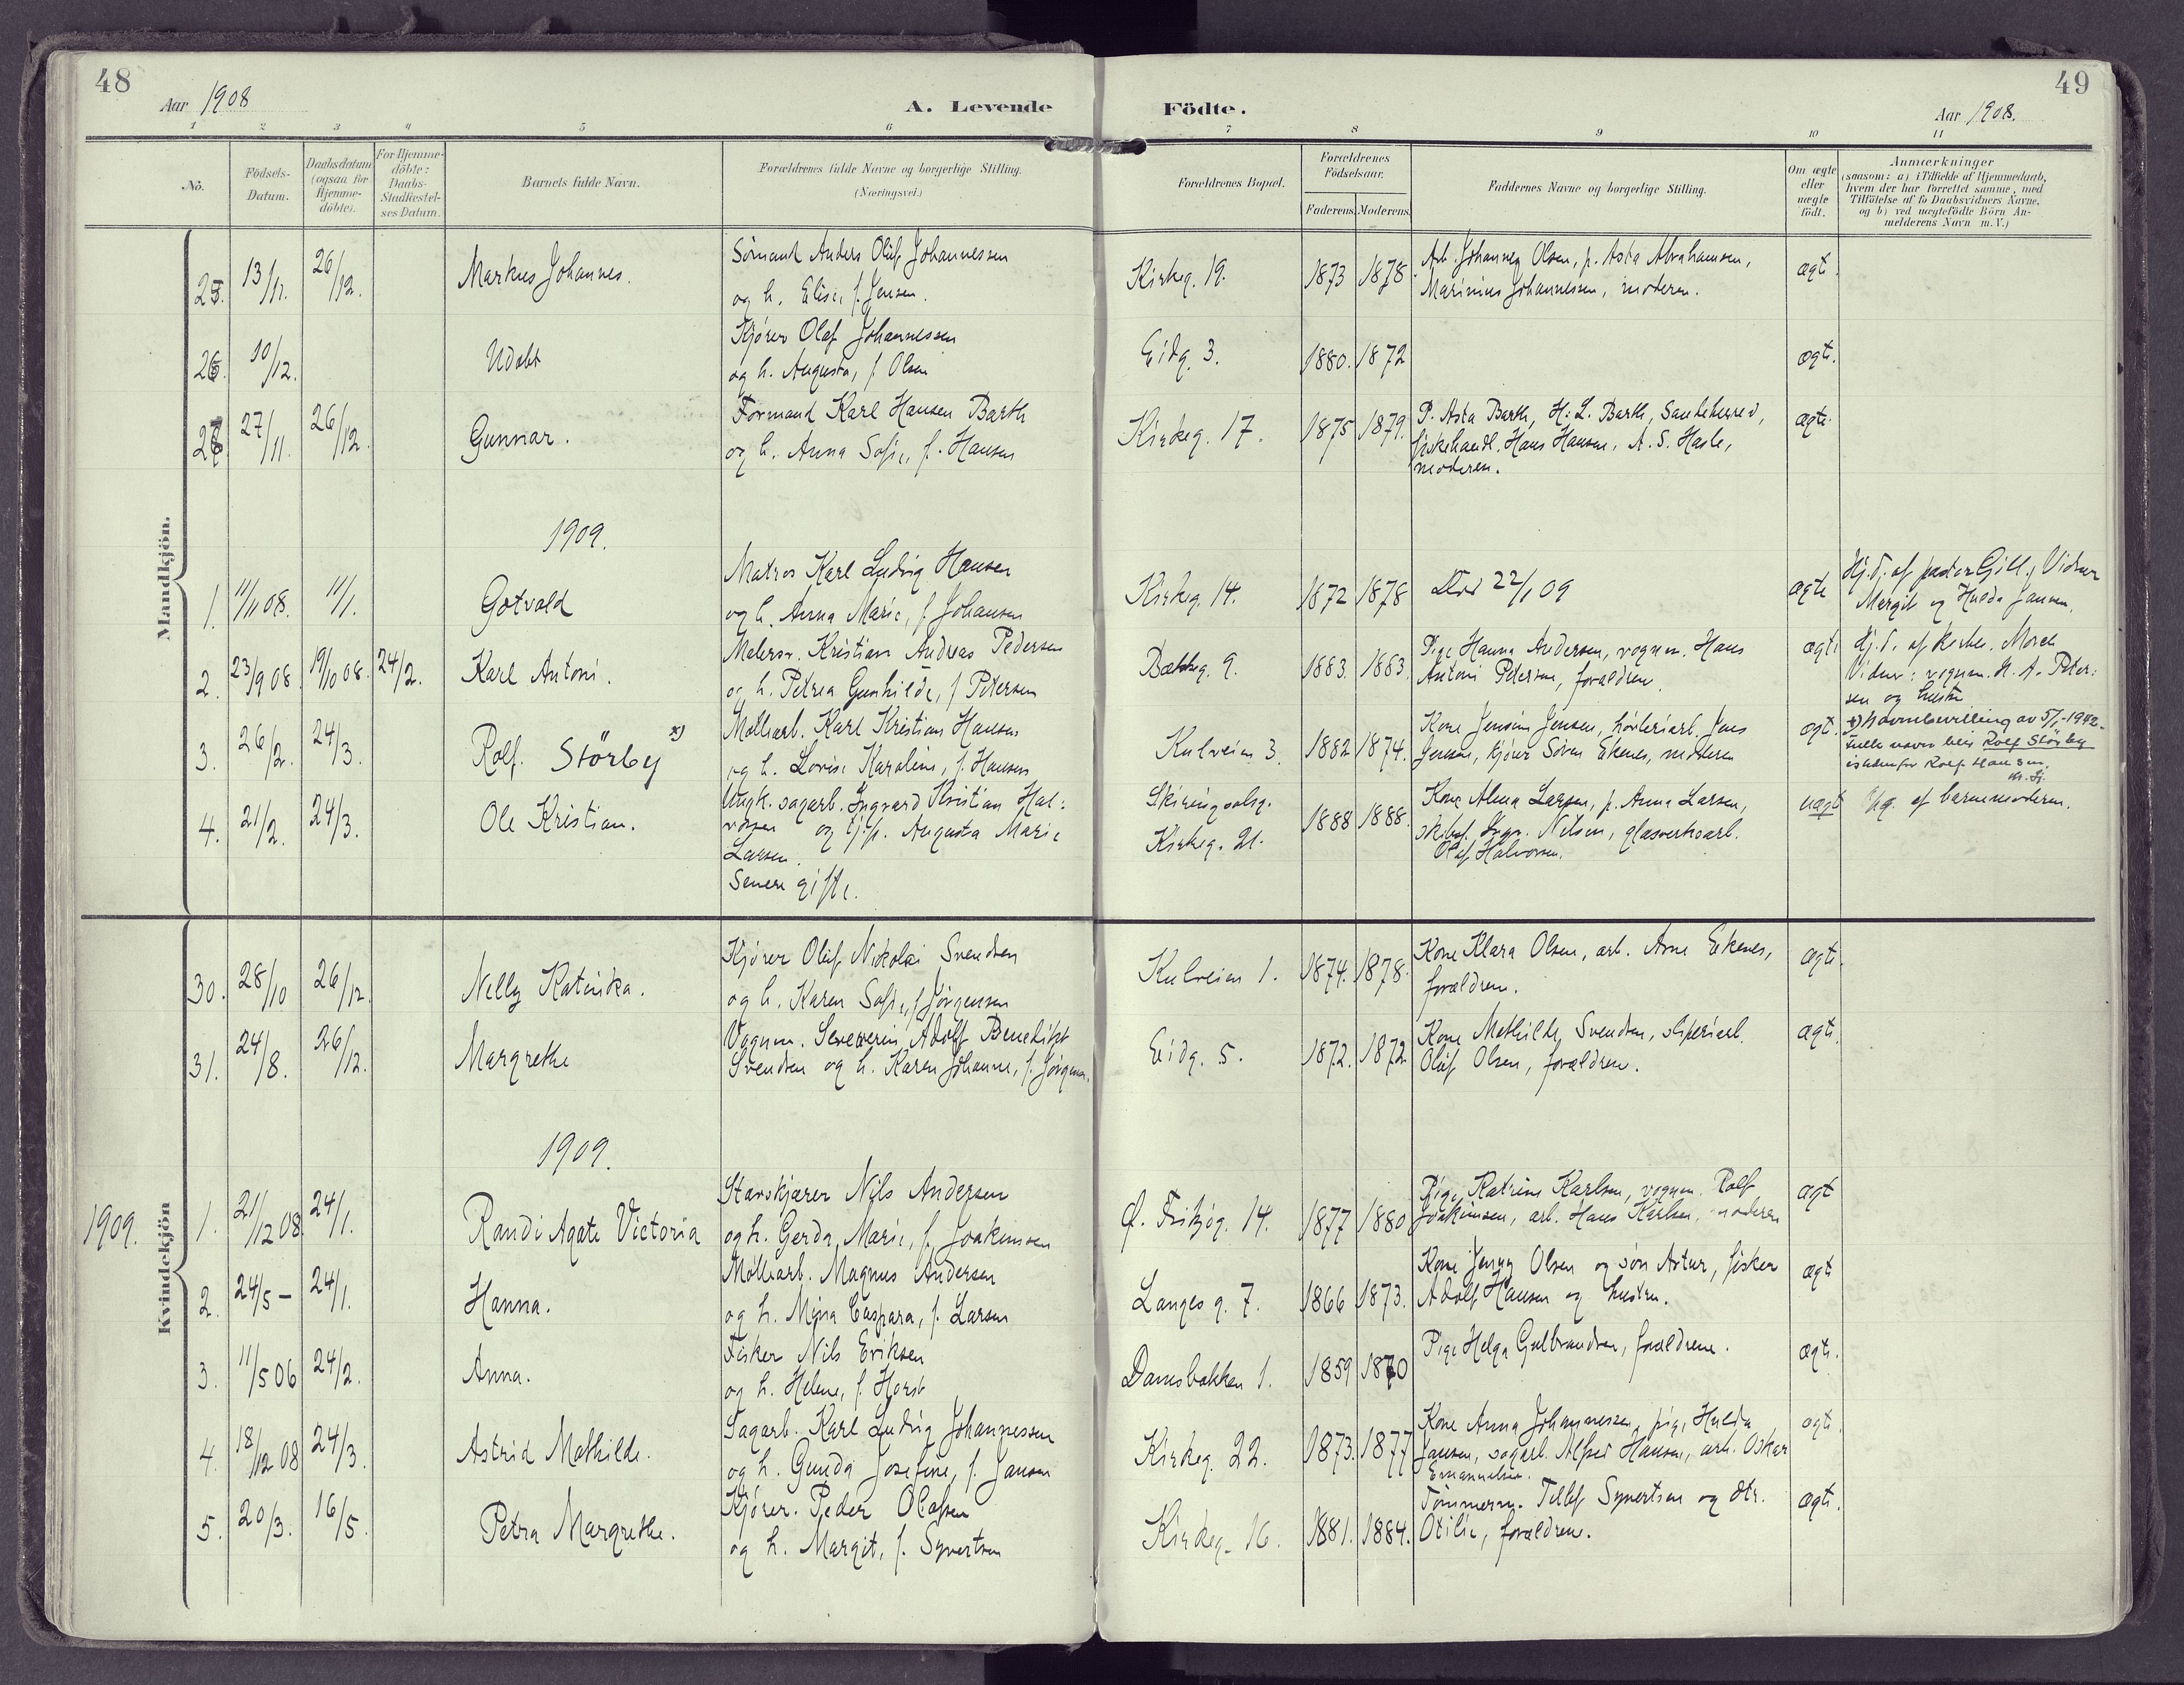 48
Aar 1908
A. Levende Födte.
Aar 1908.
49
1 2 3 4 5 6 7 8 9 10 11
No. Födsels-Datum. Daabsdatum (ogsaa for Hjemme-döbte). For Hjemme-döbte: Daabs-Stadfæstel-ses Datum. Barnets fulde Navn. Forældrenes fulde Navne og borgerlige Stilling. (Næringsvei.) Forældrenes Bopæl. Forældrenes Födselsaar. Faderens. Moderens. Faddernes Navne og borgerlige Stilling. Om ægte eller uægte födt. Anmærkninger
(saasom: a) i Tilfælde af Hjemmedaab,
hvem der har forrettet samme, med
Tilföielse af to Daabsvidners Navne,
og b) ved uægtefödte Börn An-
melderens Navn m. V.)
Mandkjön.
25. 13/11. 26/12. Markus Johannes. Sömand Anders Oluf Johannessen
og h. Elise, f. Jensen. Kirkeg. 19. 1873 1878. Arb. Johannes Olsen, p. Asta Abrahamsen,
Marinius Johannessen, moderen. ægte.
26. 10/12. Udøbt Kjörer Olaf Johannessen
og h. Augusta, f. Olsen Eidg. 3. 1880. 1872 ægte.
27. 27/11. 26/12. Gunnar. Formand Karl Hansen Barth
og h. Anna Sofie, f. Hansen Kirkeg. 17. 1875 1879. P. Asta Barth, H. L. Barth, Sandeherred,
fiskehandl. Hans Hansen, A. S. Hasle,
moderen. ægte.
1909.
1. 11/11 08. 11/1. Gotvald Matros Karl Ludvig Hansen
og h. Anna Marie, f. Johansen Kirkeg. 14. 1872 1878 Död 22/1 09 ægte Hj.d. af pastor Gill. Vidner
Margit og Hulda Jansen.
2. 23/9 08. 19/10 08. 24/2. Karl Antoni. Malersv. Kristian Andreas Pedersen
og h. Petrea Gunhilde, f. Petersen Bækkeg. 9. 1883. 1883. Pige Hanna Andersen, vognm. Hans
Antoni Petersen, forældrene. ægte Hj.d. af
Vidner: vognm. H. A. Peter-
sen og hustru
3. 26/2. 24/3. Rolf. Störby *) Mölliarb. Karl Kristian Hansen
og h. Lovise Karoline, f. Hansen Kulveien 3. 1882 1874. Kone Jensine Jensen, høvleriarb. Jens
Jensen, kjörer Sören Ekenes, moderen ægte. *) Navnebevilling av 5/1-1942-
fulle navn blir Rolf Störby
istedenfor Rolf Hansen.
4. 21/2. 24/3. Ole Kristian. Ungk. sagarb. Ingvard Kristian Hal-
vorsen og tj.p. Augusta Marie
Larsen.
Senere gifte. Skiringsalsg.
Kirkeg. 21. 1888 1888. Kone Alma Larsen, p. Anna Larsen,
Ingv. Nilsen, glasverksarb.
Olaf Halvorsen. uægte Opg. af barnemoderen.
Kvindekjön
30. 28/10 26/12. Nelly Katinka. Kjörer Oluf Nikolai Svendsen
og h. Karen Sofie, f. Jörgensen Kulveien 1. 1874. 1878. Kone Klara Olsen, arb. Arne Ekenes,
forældrene. ægte.
31. 24/8. 26/12. Margrethe Vognm. Severin Adolf Benedikt
Svendsen og h. Karen Johanne, f. Jörgensen. Eidg. 5. 1872. 1872. Kone Mathilde Svendsen, sliperiarb.
Oluf Olsen, forældrene. ægte.
1909.
1909. 1. 21/12 08. 24/1. Randi Agate Victoria Stavskjærer Nils Andersen
og h. Gerda Marie, f. Joakimsen Ø. Fritzög. 14. 1877 1880 Pige Katrine Karlsen, vognm. Rolf
Joakimsen, arb. Hans Karlsen, moderen ægte
2. 24/5 - 24/1. Hanna. Mölliarb. Magnus Andersen
og h. Mina Caspara, f. Larsen Langes g. 7. 1866 1873. Kone Jenny Olsen og sön Artur, fisker
Adolf Hansen og hustru. ægte
3. 11/5 06 24/2. Anna. Fisker Nils Eriksen
og h. Helene, f. Horst Damsbakken 1. 1859 1870 Pige Helga Gulbrandsen, forældrene. ægte.
4. 18/12 08 24/3. Astrid Mathilde. Sagarb. Karl Ludvig Johannessen
og h. Gunda Josefine, f. Jansen Kirkeg. 22. 1873. 1877 Kone Anna Johannessen, pige Hulda
Jansen, sagarb. Alfred Hansen, arb. Oskar
Emanuelsen. ægte.
5. 20/3. 16/5. Petra Margrethe. Kjörer. Peder Olafsen
og h. Margit, f. Syvertsen Kirkeg. 16. 1881. 1884. Tömmerm. Tellef Syvertsen og dtr.
Otilie, forældrene. ægte.